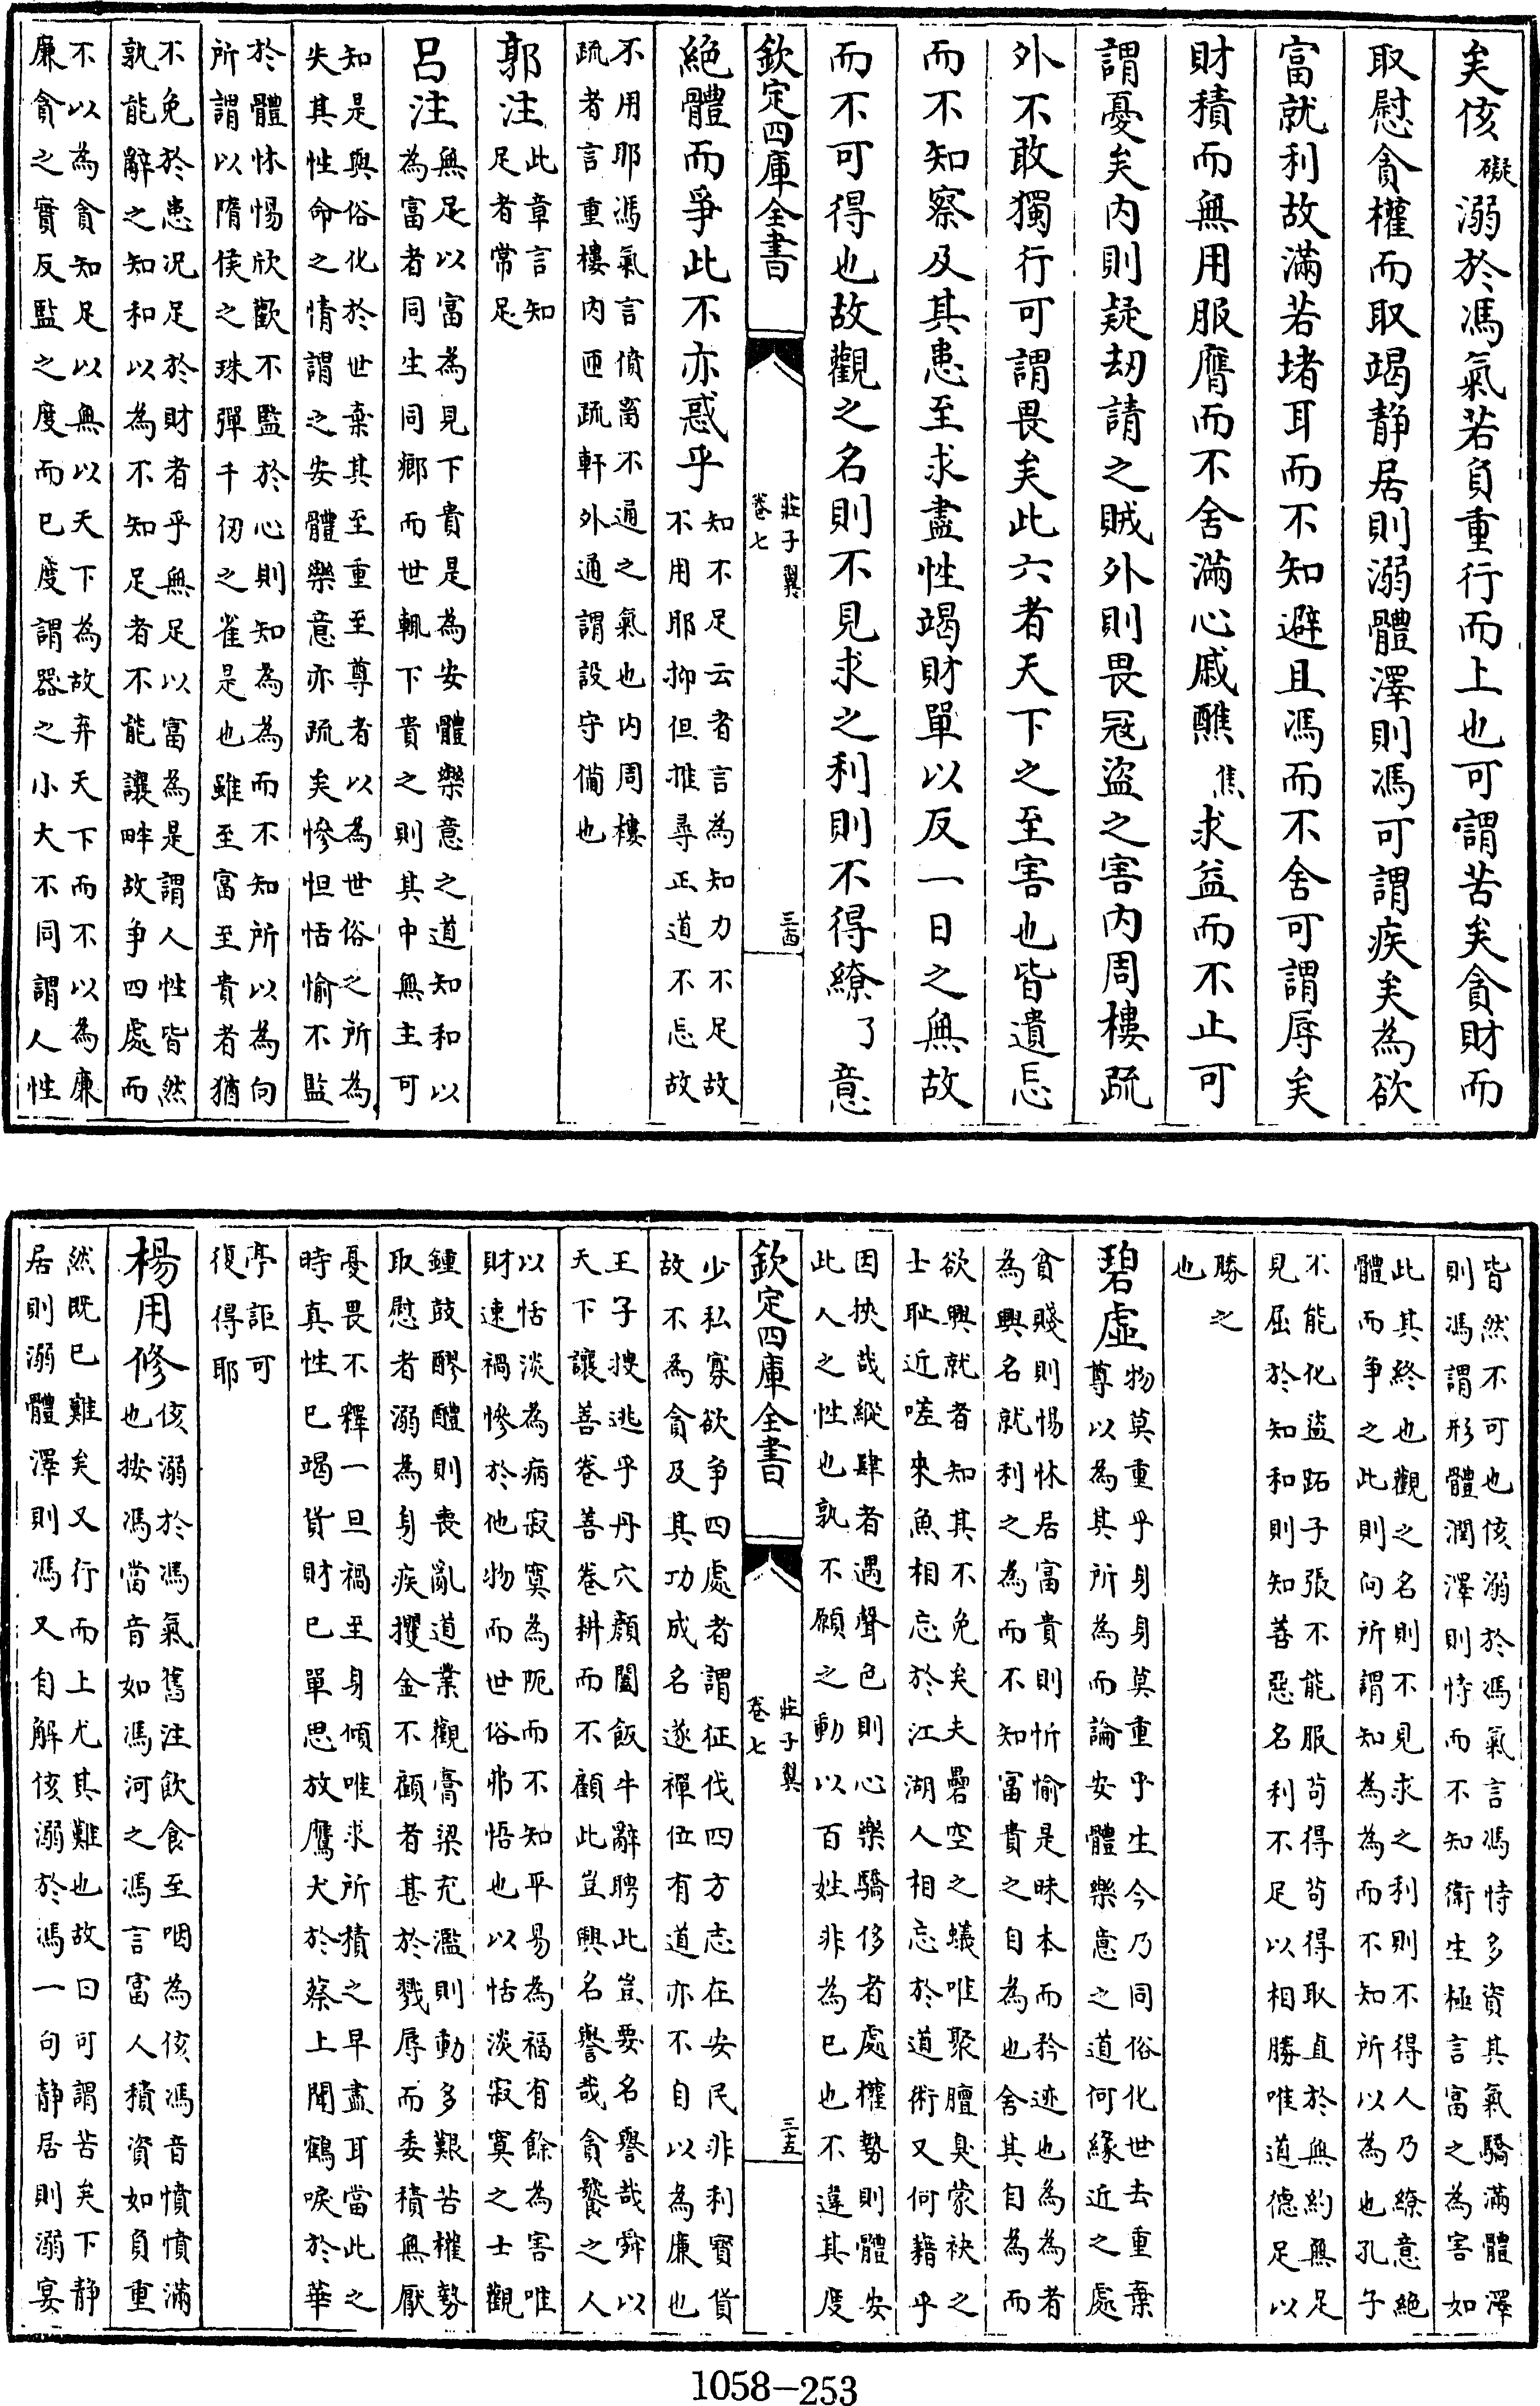 矣侅礙溺於馮氣若負重行而上也可謂苦矣貪財而
取慰貪權而取竭静居則溺體澤則馮可謂疾矣為欲
富就利故滿若堵耳而不知避且馮而不舍可謂辱矣
財積而無用服膺而不舍滿心戚醮焦求益而不止可
謂憂矣内則疑刼請之賊外則畏冦盜之害内周樓疏
外不敢獨行可謂畏矣此六者天下之至害也皆遺忘
而不知察及其患至求盡性竭財單以反一日之無故
而不可得也故觀之名則不見求之利則不得繚了意
欽定四庫全書
莊子翼
卷七
三四
絶體而爭此不亦惑乎
知不足云者言為知力不足故
不用耶抑但推尋正道不忘故
不用耶馮氣言憤畜不通之氣也内周樓
疏者言重樓内匝疏軒外通謂設守備也
郭注
此章言知
足者常足
吕注
無足以富為見下貴是為安體樂意之道知和以
為富者同生同鄉而世輒下貴之則其中無主可
知是與俗化於世棄其至重至尊者以為世俗之所為
失其性命之情謂之安體樂意亦疏矣慘怛恬愉不監
於體怵惕欣歡不監於心則知為為而不知所以為向
所謂以隋侯之珠彈千仞之雀是也雖至富至貴者猶
不免於患况足於財者乎無足以富為是謂人性皆然
孰能辭之知和以為不知足者不能讓畔故争四處而
不以為貪知足以無以天下為故弃天下而不以為廉
廉貪之實反監之度而已度謂器之小大不同謂人性
皆然不可也侅溺於馮氣言馮恃多資其氣驕滿體澤
則馮謂形體潤澤則恃而不知衛生極言富之為害如
此其終也觀之名則不見求之利則不得人乃繚意絶
體而争之此則向所謂知為為而不知所以為也孔子
不能化盜跖子張不能服茍得茍得取直於無約無足
見屈於知和則知善惡名利不足以相勝唯道德足以
勝之
也
碧虛
物莫重乎身身莫重乎生今乃同俗化世去重棄
尊以為其所為而論安體樂意之道何緣近之處
貧賤則惕怵居富貴則忻愉是昧本而矜迹也為為者
為興名就利之為而不知富貴之自為也舍其自為而
欲興就者知其不免矣夫罍空之蟻唯聚膻臭蒙袂之
士恥近嗟來魚相忘於江湖人相忘於道術又何藉乎
因挾哉縱肆者遇聲色則心樂驕侈者處權勢則體安
此人之性也孰不願之動以百姓非為已也不違其度
欽定四庫全書
莊子翼
卷七
三五
少私寡欲争四處者謂征伐四方志在安民非利寳貨
故不為貪及其功成名遂禪位有道亦不自以為廉也
王子搜逃乎丹穴顔闔飯牛辭聘此豈要名譽哉舜以
天下讓善卷善卷耕而不顧此豈興名譽哉貪饕之人
以恬淡為病寂寞為阨而不知平易為福有餘為害唯
財速禍慘於他物而世俗弗悟也以恬淡寂寞之士觀
鍾鼓醪醴則喪亂道業觀膏粱充濫則動多艱苦權勢
取慰者溺為身疾攫金不顧者甚於戮辱而委積無厭
憂畏不釋一旦禍至身傾唯求所積之早盡耳當此之
時真性已竭貨財已單思放鷹犬於蔡上聞鶴唳於華
亭詎可
復得耶
楊用修
侅溺於馮氣舊注飲食至咽為侅馮音憤憤滿
也按馮當音如馮河之馮言富人積資如負重
然既已難矣又行而上尤其難也故曰可謂苦矣下静
居則溺體澤則馮又自解侅溺於馮一句静居則溺宴
1058-253